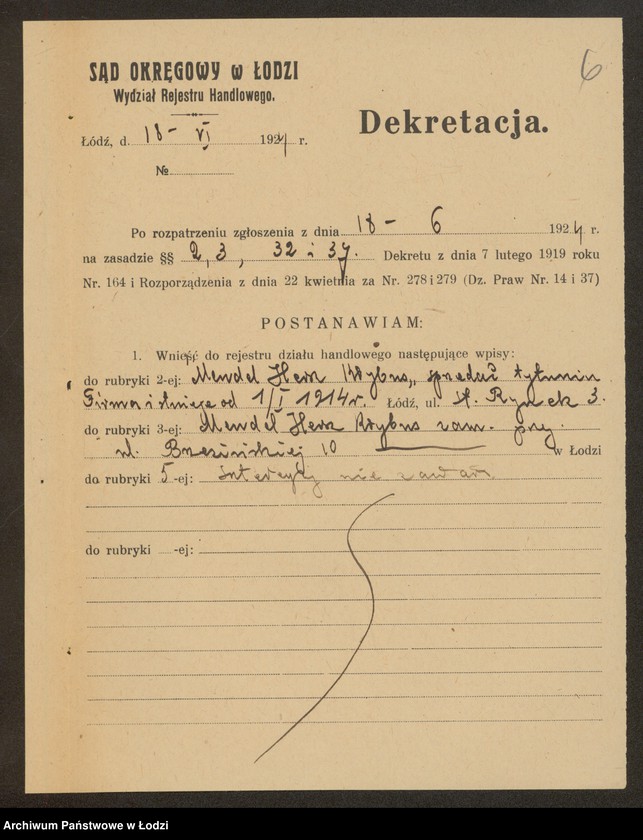 6
SĄD OKRĘGOWY w ŁODZI
Wydział Rejestru Handlowego.
Dekretacja.
Łódź, d. 18 - VI 1924 r.
№
Po rozpatrzeniu zgłoszenia z dnia 18 - 6 1924 r.
na zasadzie §§ 2, 3, 32 i 37. Dekretu z dnia 7 lutego 1919 roku
Nr. 164 i Rozporządzenia z dnia 22 kwietnia za Nr. 278 i 279 (Dz. Praw Nr. 14 i 37)
POSTANAWIAM:
1. Wnieść do rejestru działu handlowego następujące wpisy:
do rubryki 2-ej: Mendel Hersz „ spedaż tytuniu
Firma istnieje od 1/I 1914 r. Łódź, ul. St. Rynek 3.
do rubryki 3-ej: Mendel Hersz zam. przy.
ul. Brzezińskiej 10 w Łodzi
do rubryki 5-ej: intercyzy nie zawarł
do rubryki -ej:
Archiwum Państwowe w Łodzi